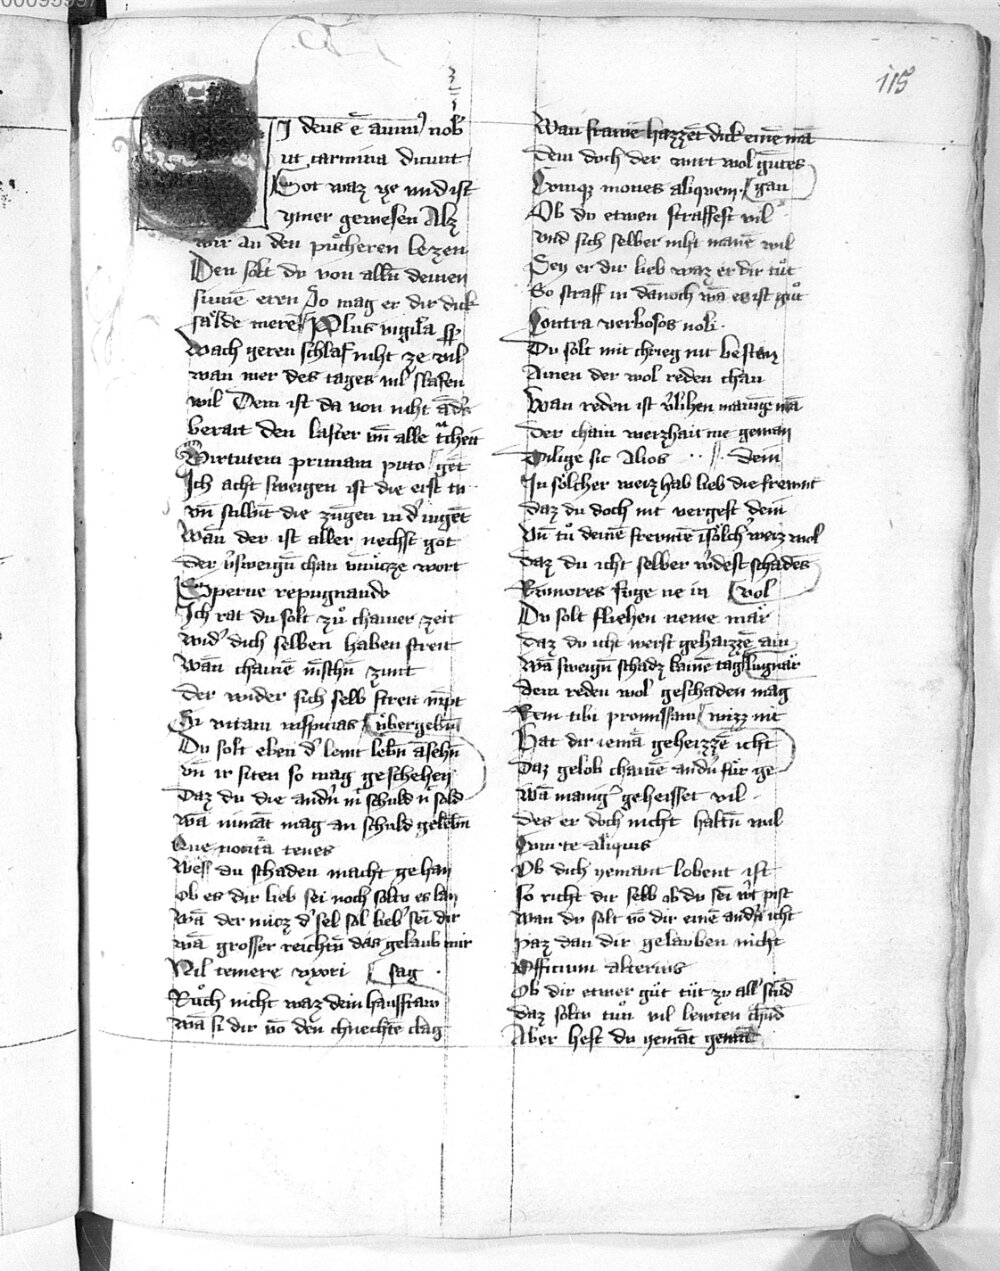 115
SI deus ē animꝰ nobˀ
ut carmina dicunt
Got waz ye vnd ist
ymer gewesen Alz
wir an den puͤcheren lezen
Den solt du von allen deinen
sinnē eren So mag er dir dick
saͤlde merē Plus vigila sꝑ
Wach geren schlaf niht ze vil
wan wer des tages vil slafen
wil Dem ist da von niht
berait den laster vn̄ alle
Virtutem primam puto
Ich acht sweigen ist die erst tu
vn̄ stillūt die zungen in dˀ iugēt
Wan̄ der ist aller nechst got
der vˀsweign̄ chan vnnücze wort
Sperne repugnando
Ich rat du solt zuͦ chainer zeit
widˀ dich selben haben streit
Wan̄ chainē mēschn̄ zimt
der wider sich selb streit nīpt
Si vitam inspicias
Du solt eben dˀ lewt lebn̄ āsehn̄
vn̄ ir siten so mag geschehen
Daz du die andn̄ nit schuld solt
wā nimāt mag an schuld gelebn̄
Que nocitā tenes
Wess du schaden macht gehan
ob es dir lieb sei noch soltu es lan
wā der nucz dˀ sel sol liebˀ sei dir
wā grosser reichtū das gelaub mir
Nil temere vxori sag
Ruͦch nicht waz dein hausfraw
wā si dir vō den chnechtē clag
Wan frawē hazzēt dick einē mā
dem doch der wirt wol gutes
Cumqꝫ mones aliquem gan
Ob du etwen straffest vil
vnd sich selber niht manē wil
Sey er dir lieb waz er dir tuͦt
So straff in dānoch wā es ist guͦt
Contra verbosos noli
Du solt mit chrieg nit besten
Ainen der wol reden chan
Wan reden ist vˀlihen manigē mā
der chain werzhait nie gewan
Dilige sic Alios dein
In solcher weiz hab lieb die frewnt
daz du doch nit vergest dein
Vn̄ tuͦ deinē frewnten in soͤlchˀ weiz wol
daz du icht selber wˀdest schadēs
Rumores fuge ne in vol
Du solt fliehen newe maͤr
daz du icht werst gehaizzē ain
Wā sweign̄ schadz kainē tag lugnaͤr
dem reden wol geschaden mag
Rem tibi promissam wizz nit
Hat dir iemā geheizzē icht
daz gelob chainē andn̄ fuͤr ge
Wā manigˀ geheisset vil
des er doch nicht haltn̄ wil
Cum te aliquis
Ob dich yemant lobent ist
so richt dir selb ob du sei pist
Wan du solt vō dir einē andn̄ icht
paz dan dir gelauben nicht
Officium alterius
Ob dir etwer guͦt tuͦt zu allˀ stūd
daz soltu tuͦn vil lewten chūd
Aber hest du yemāt